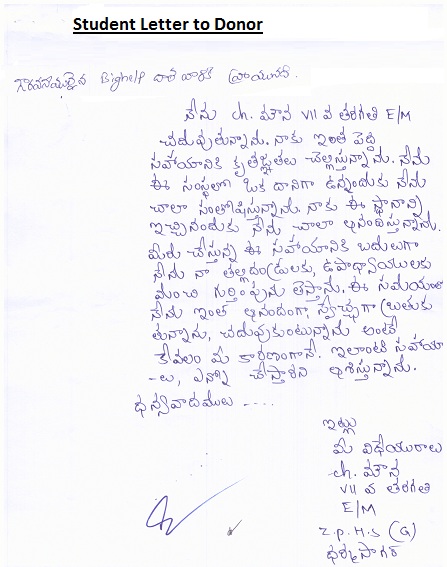 Student Letter to Donor
గౌరవనీయులైన Bighelp దాత వారికి వ్రాయునది.
నేను ch. మౌన VII వ తరగతి E/M
చదువుతున్నాను. నాకు ఇంత పెద్ద
సహాయానికి కృతజ్ఞతలు చెల్లిస్తున్నాను. నేను
ఈ సంస్థలో ఒక దానిగా ఉన్నందుకు నేను
చాలా సంతోషిస్తున్నాను. నాకు ఈ స్థానాన్ని
ఇచ్చినందుకు నేను చాలా ఆనందిస్తున్నాను.
మీరు చేస్తున్న ఈ సహాయానికి బదులుగా
నేను నా తల్లదండ్రులకు, ఉపాధ్యాయులకు
మంచి గుర్తింపును తెస్తాను. ఈ సమయంలో
నేను ఇంత ఆనందంగా, స్వేచ్ఛగా బ్రతుకు
తున్నాను, చదువుకుంటున్నాను అంటే
కేవలం మీ కారణంగానే. ఇలాంటి సహాయా
-లు, ఎన్నో చేస్తారని ఆశిస్తున్నాను.
ధన్యవాదములు ----
ఇట్లు
మీ విధేయురాలు
ch. మౌన
VII వ తరగతి
E/M
Z.P.H.S (G)
ధర్మసాగర్